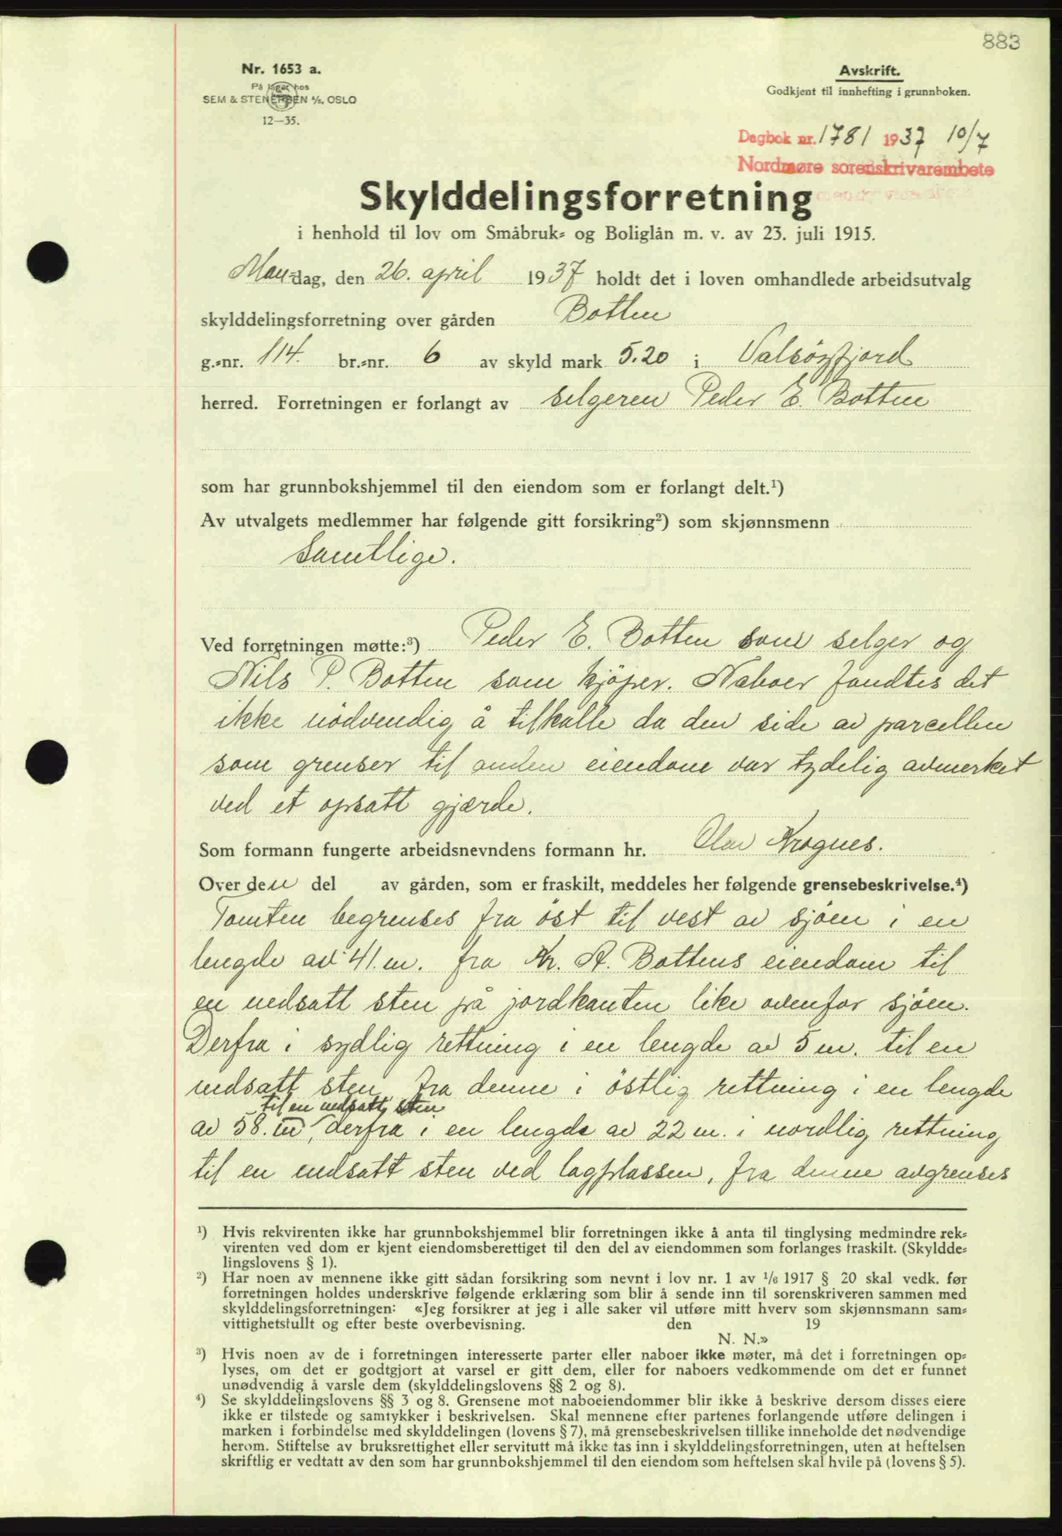 883
Nr. 1653 a.
På lager hos
SEM & STENERSEN A/S, OSLO
12—35.
Avskrift.
Godkjent til innhefting i grunnboken.
Dagbok nr. 1781 1937 10/7
Nordmøre sorenskrivarembete
Skylddelingsforretning
i henhold til lov om Småbruk= og Boliglån m. v. av 23. juli 1915.
Mandag, den 26. april 1937 holdt det i loven omhandlede arbeidsutvalg
skylddelingsforretning over gården Botten
g.=nr. 114. br.=nr. 6 av skyld mark 5.20 i Valsøyfjord
herred. Forretningen er forlangt av selgeren Peder E. Botten
som har grunnbokshjemmel til den eiendom som er forlangt delt.¹)
Av utvalgets medlemmer har følgende gitt forsikring²) som skjønnsmenn
Samtlige.
Ved forretningen møtte:³) Peder E. Botten som selger og
Nils P. Botten som kjøper. Naboer fandtes det
ikke nödvendig å tilkalle da den side av parcellen
som grenser til anden eiendom var tydelig avmerket
ved et opsatt gjærde.
Som formann fungerte arbeidsnevndens formann hr. Olav Krognes.
Over den del av gården, som er fraskilt, meddeles her følgende grensebeskrivelse.⁴)
Tomten begrenses fra öst til vest av sjöen i en
lengde av 41 m. fra Kr. A. Bottens eiendom til
en nedsatt sten på jordkanten like ovenfor sjöen.
Derfra i sydlig rettning i en lengde av 5 m. til en
nedsatt sten fra denne i östlig rettning i en lengde
til en nedsatt sten
av 58. m, derfra i en lengde av 22 m. i nordlig rettning
til en nedsatt sten ved lagplassen, fra denne avgrenses
¹) Hvis rekvirenten ikke har grunnbokshjemmel blir forretningen ikke å anta til tinglysing medmindre rek=
virenten ved dom er kjent eiendomsberettiget til den del av eiendommen som forlanges fraskilt. (Skyldde=
lingslovens § 1).
²) Har noen av mennene ikke gitt sådan forsikring som nevnt i lov nr. 1 av 1/6 1917 § 20 skal vedk. før
forretningen holdes underskrive følgende erklæring som blir å sende inn til sorenskriveren sammen med
skylddelingsforretningen: «Jeg forsikrer at jeg i alle saker vil utføre mitt hverv som skjønnsmann sam=
vittighetsfullt og efter beste overbevisning. den 19
N. N.»
³) Hvis noen av de i forretningen interesserte parter eller naboer ikke møter, må det i forretningen op=
lyses, om det er godtgjort at varsel er gitt dem, eller for naboers vedkommende om det er funnet
unødvendig å varsle dem (skylddelingslovens §§ 2 og 8).
⁴) Se skylddelingslovens §§ 3 og 8. Grensene mot naboeiendommer blir ikke å beskrive dersom disses eiere
ikke er tilstede og samtykker i beskrivelsen. Skal mennene efter partenes forlangende utføre delingen i
marken i forbindelse med skylddelingen (lovens § 7), må grensebeskrivelsen tillike inneholde det nødvendige
herom. Stiftelse av bruksrettighet eller servitutt må ikke tas inn i skylddelingsforretningen, uten at heftelsen
skriftlig er vedtatt av den som har grunnbokshjemmel til den eiendom som heftelsen skal hvile på (lovens § 5).